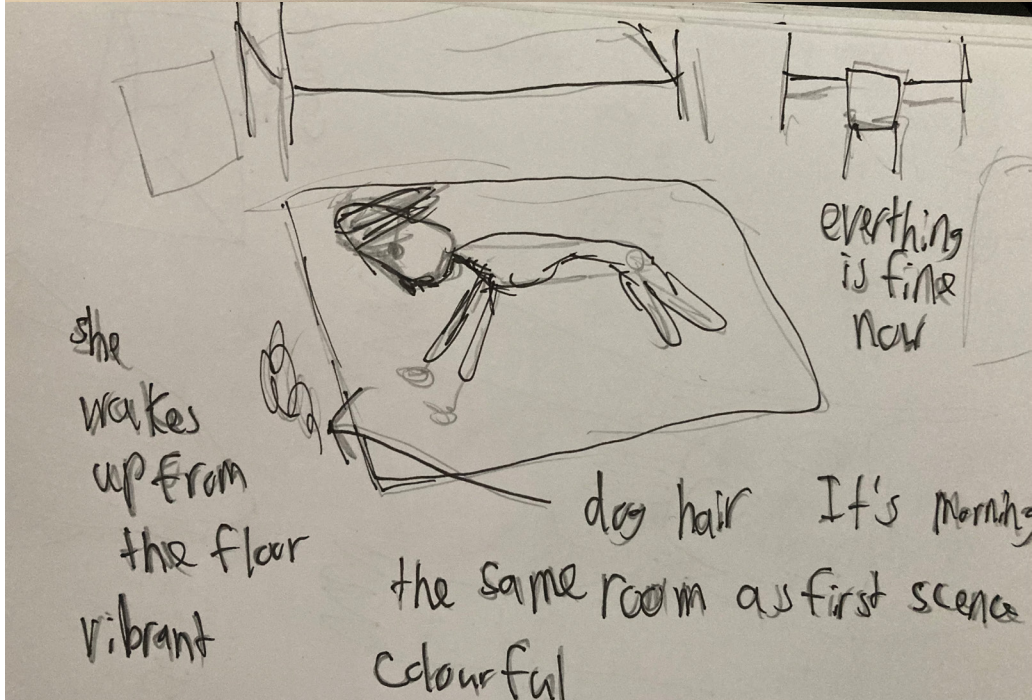 everthing
is fine
now
she
wakes
up from
the floor
vibrant
dog hair
It's morning
the same room as first scence
colourful